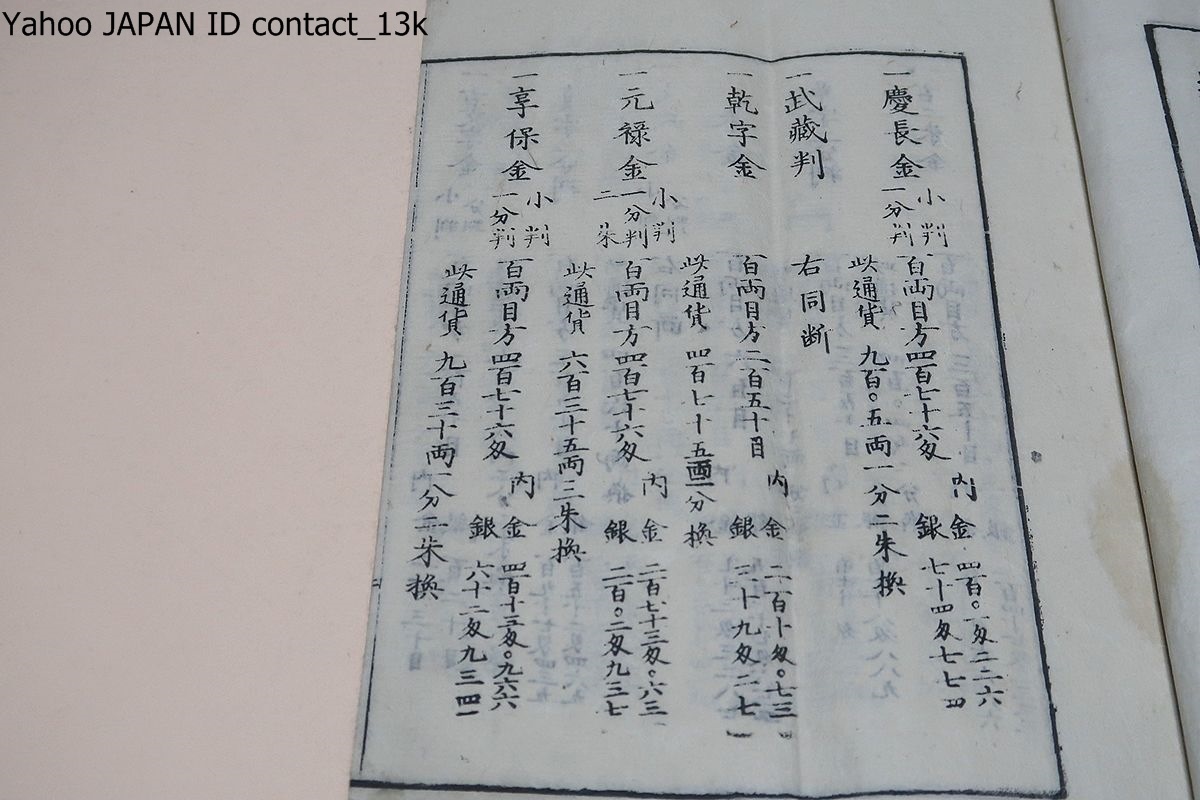 Yahoo JAPAN ID contact_13k
一慶長金 小判 一分判 百両目方四百七十六匁 内 金 四百〇一匁二二六
銀 七十四匁七七四
此通貨 九百〇五両一分二朱換
一武蔵判 右同断
一乾字金 百両目方二百五十目 内 金 二百十匁〇七三
銀 三十九匁二七
此通貨 四百七十五両一分換
一元禄金 小判 一分判 二朱 百両目方四百七十六匁 内 金 二百七十三匁〇六三
銀 二百〇二匁九三七
此通貨 六百三十五両三朱換
一享保金 小判 一分判 百両目方四百七十六匁 内 金 四百十三匁〇六六
銀 六十二匁九三四
此通貨 九百三十両一分二朱換